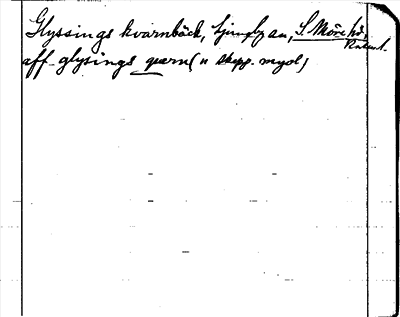 Glyssings kvarnbäck, Ljungbyån, S. Möre hd,
aff glysings qwarn (11 skepp. myol)